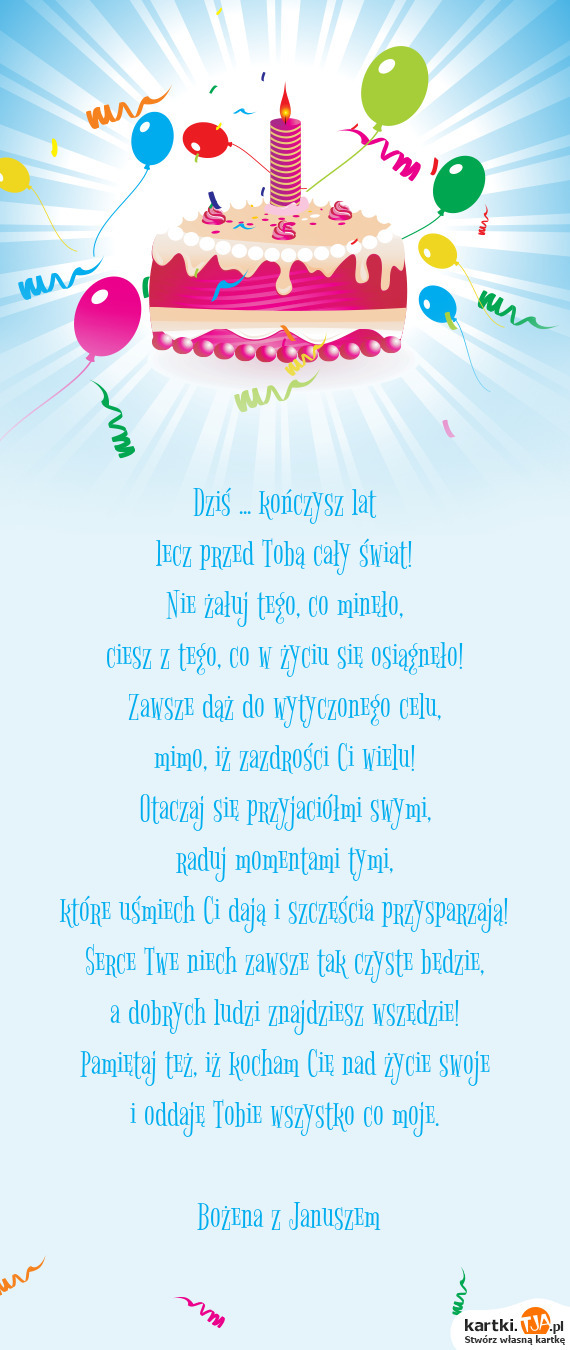 Dziś ... kończysz lat
lecz przed Tobą cały świat!
Nie żałuj tego, co minęło,
ciesz z tego, co w życiu się osiągnęło!
Zawsze dąż do wytyczonego celu,
mimo, iż zazdrości Ci wielu!
Otaczaj się przyjaciółmi swymi,
raduj momentami tymi,
które uśmiech Ci dają i szczęścia przysparzają!
Serce Twe niech zawsze tak czyste będzie,
a dobrych ludzi znajdziesz wszędzie!
Pamiętaj też, iż kocham Cię nad życie swoje
i oddaję Tobie wszystko co moje.
Bożena z Januszem
kartki.TJA.pl
Stwórz własną kartkę